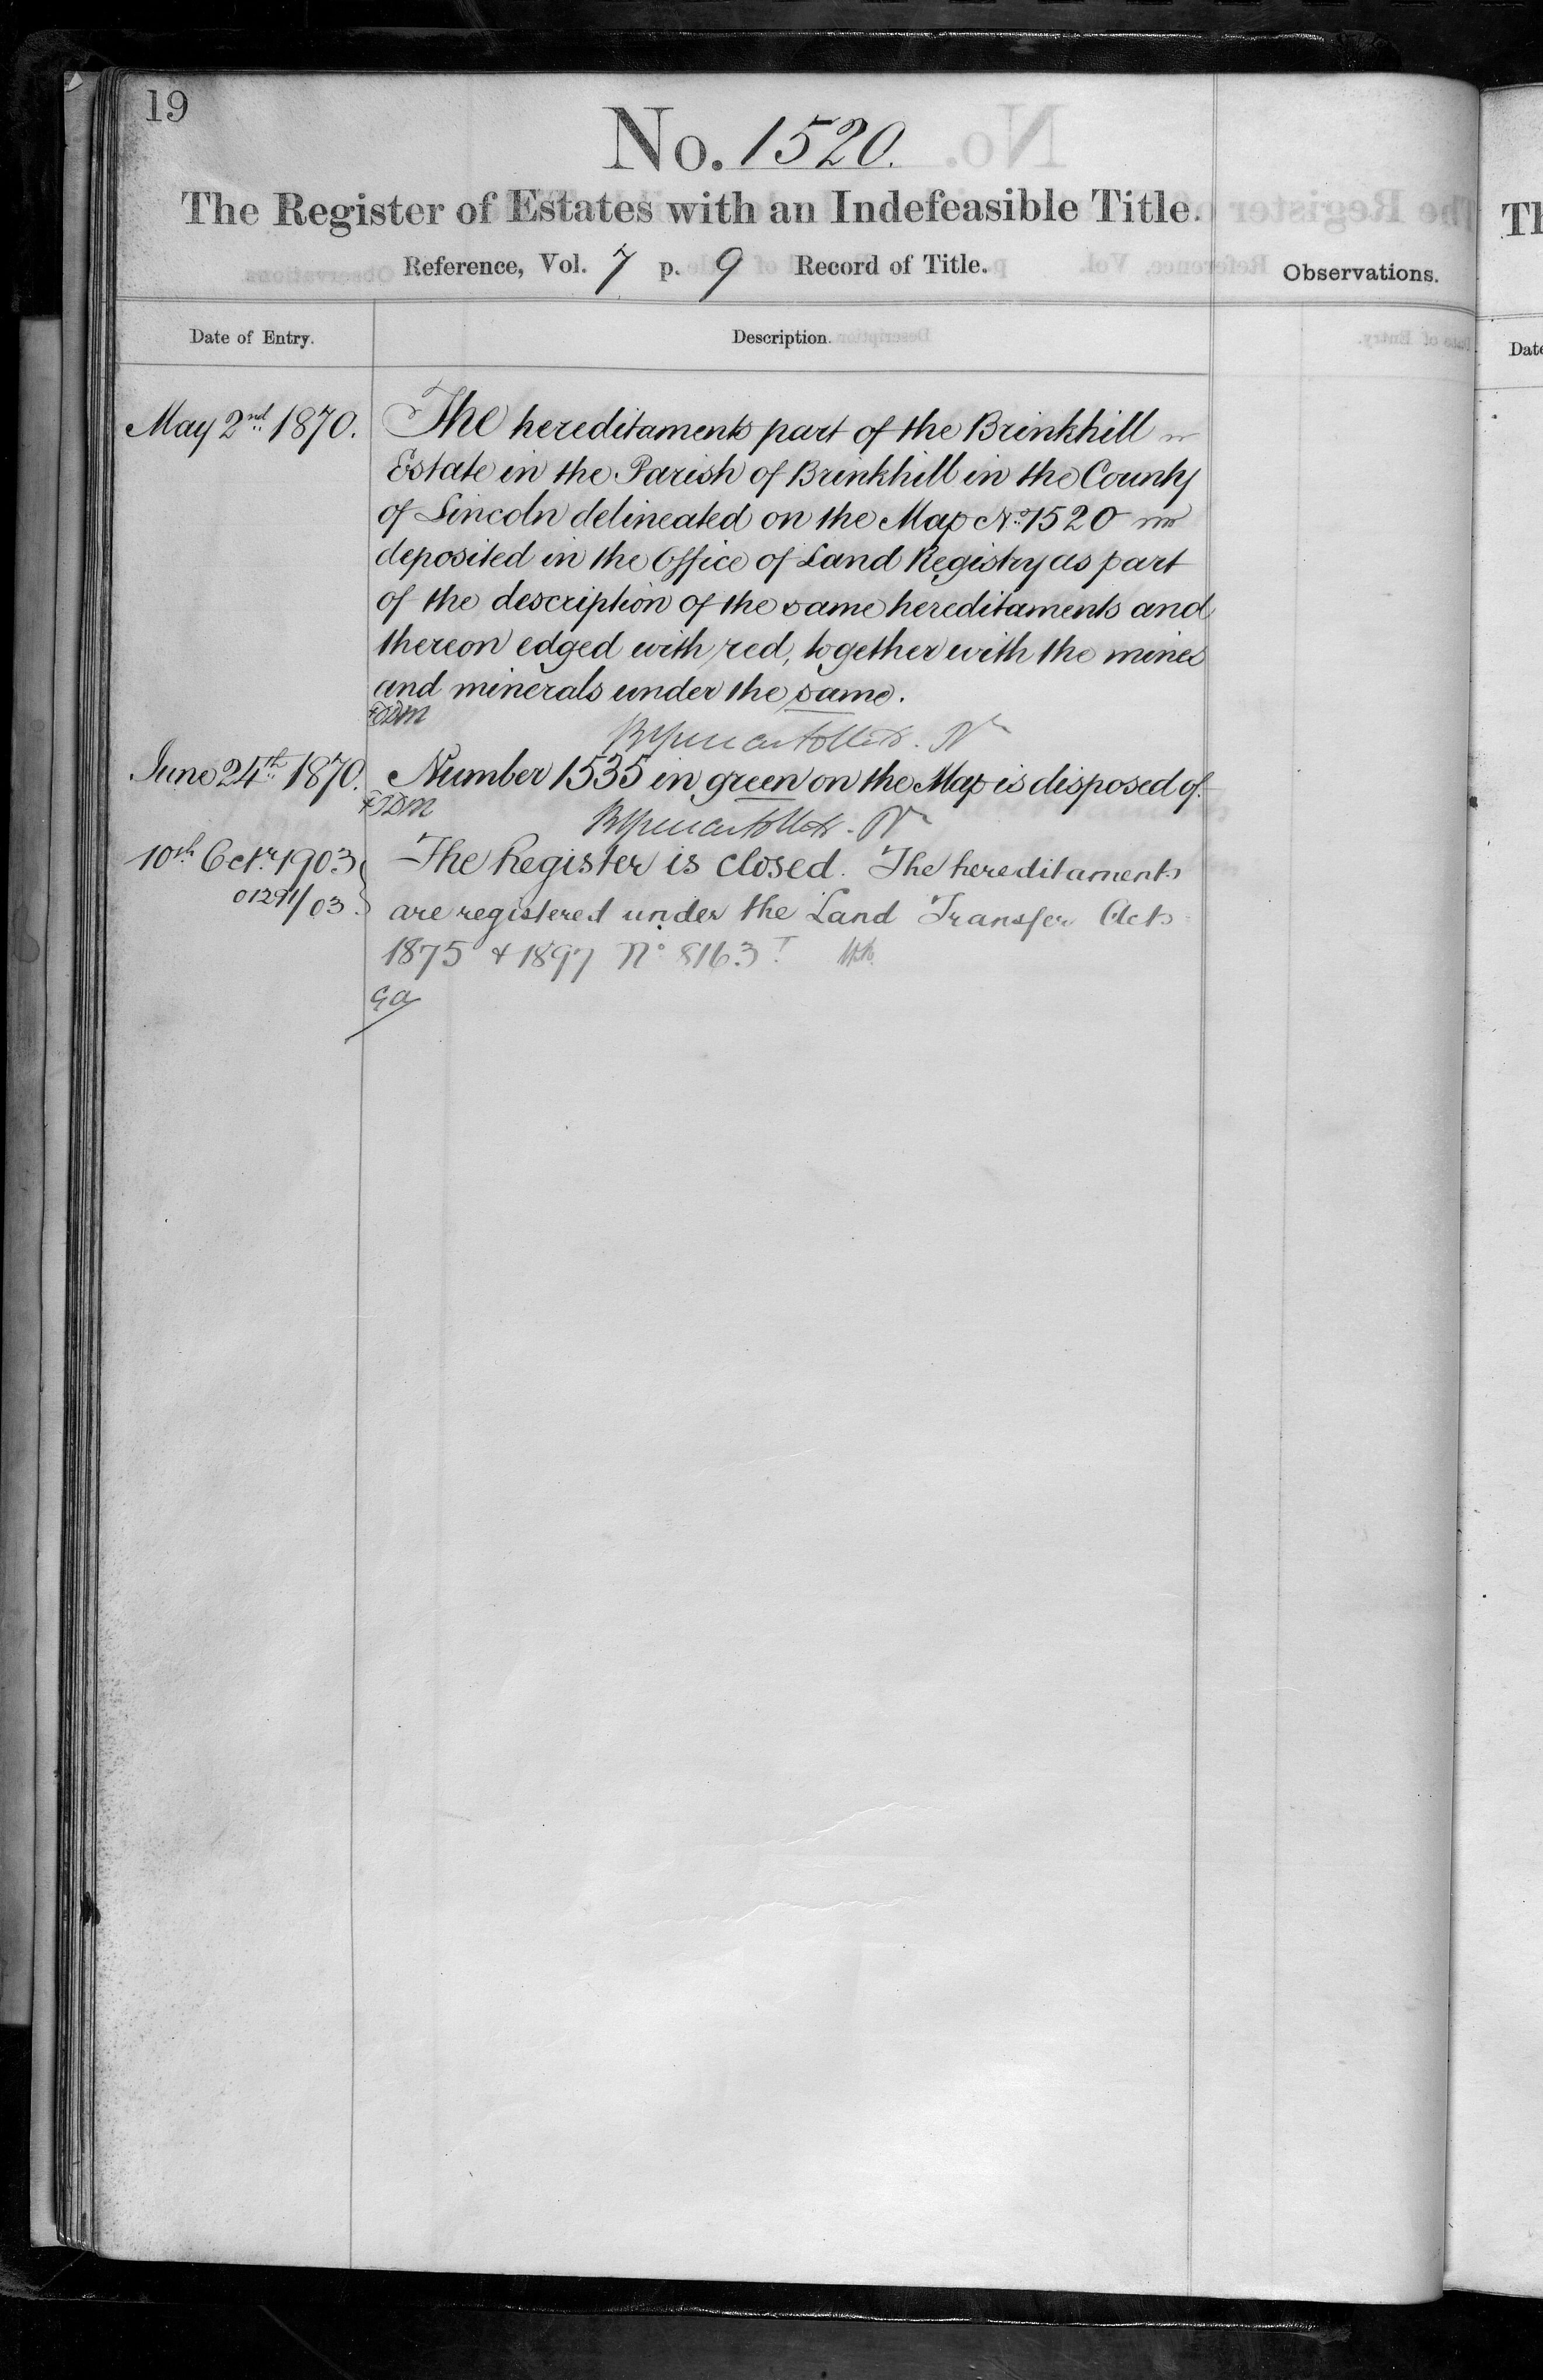 19
No. 1520.
The Register of Estates with an Indefeasible Title.
Reference, Vol. 7 p. 9 Record of Title.
Observations.
Date of Entry.
Description.
May 2nd 1870.
The hereditaments part of the Brinkhill
Estate in the Parish of Brinkhill in the County
of Lincoln delineated on the Map No. 1520
deposited in the Office of Land Registry as part
of the description of the same hereditaments and
thereon edged with red, together with the mines
and minerals under the same.
June 24th 1870.
Number 1535 in green on the Map is disposed of.
10th Octr. 1903
01291/03
The Register is closed. The hereditaments
are registered under the Land Transfer Acts
1875 & 1897 No 8163
Th
Date